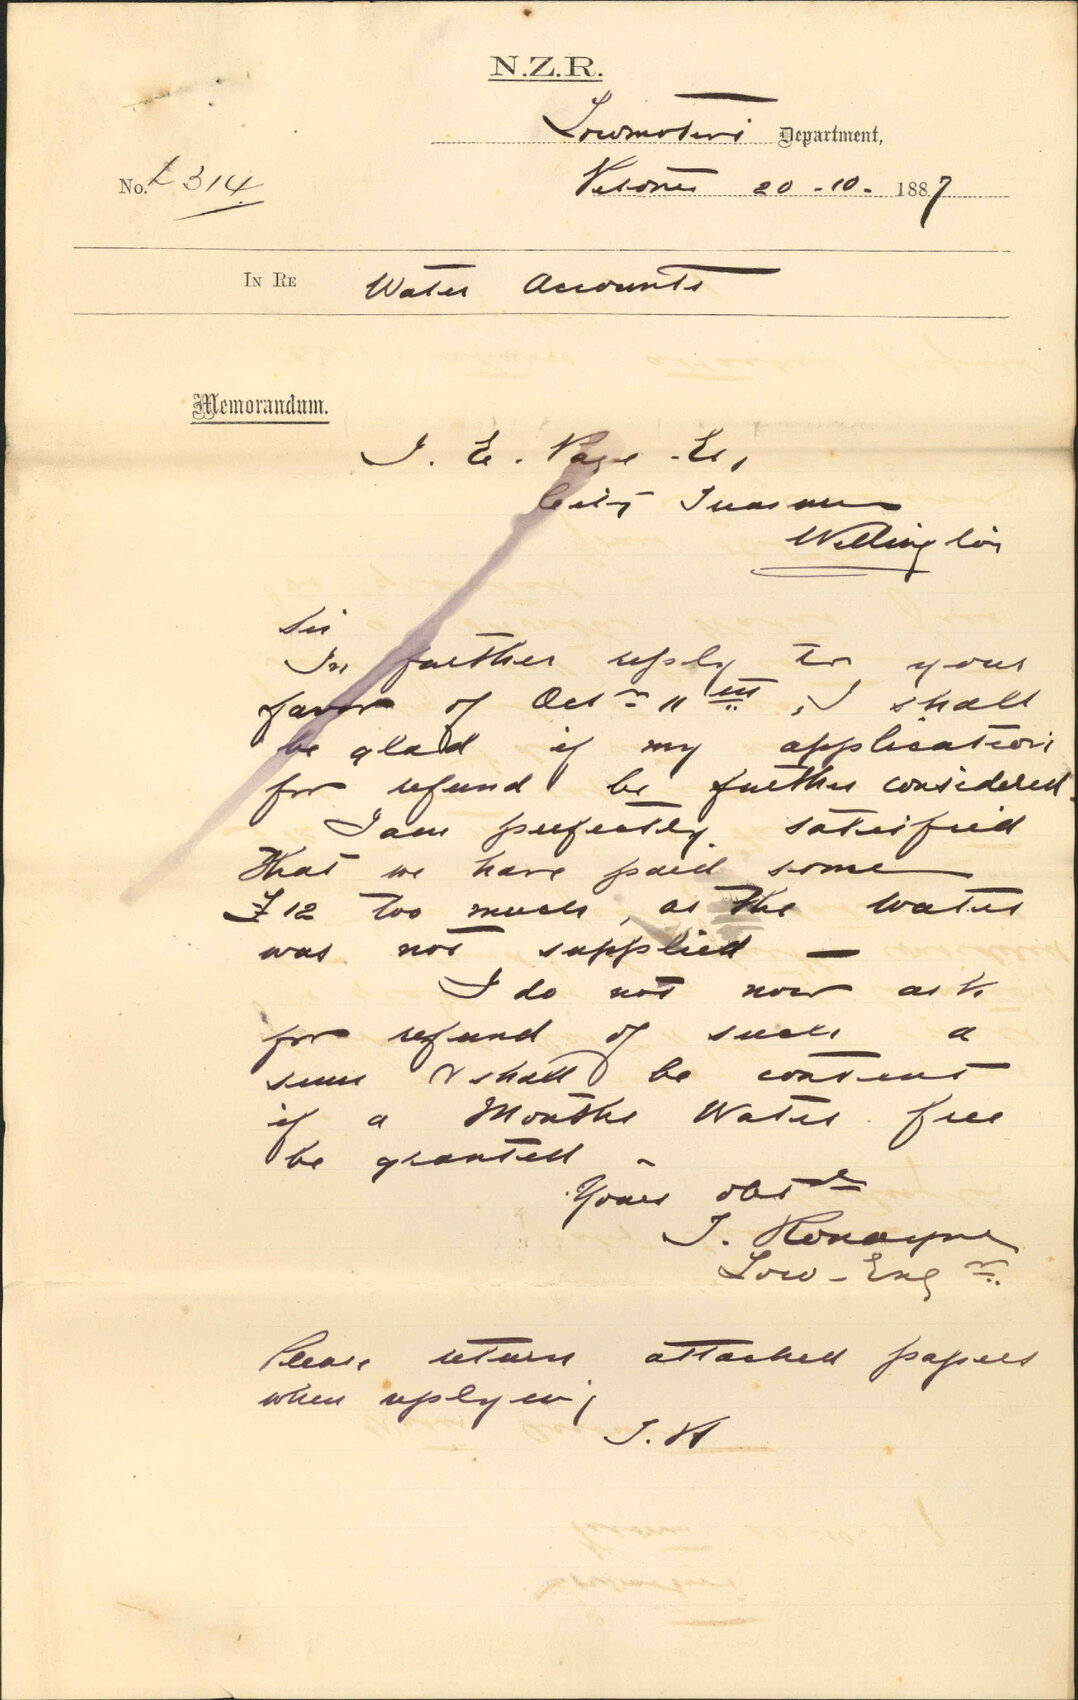 N.Z.R.
Locomotive Department,
No. L 314
Petone 20 - 10 - 1887
IN RE Water Accounts
Memorandum.
J. E. Page Esq
City Treasurer
Wellington
Sir
In further reply to your
favor of Octr 11th, I shall
be glad if my application
for refund be further considered.
I am perfectly satisfied
that we have paid some
£12 too much, as the water
was not supplied —
I do not now ask
for refund of such a
sum & shall be content
if a Months Water free
be granted -
Yours obtly
T. Ronayne
Loco - Engr.
Please return attached papers
when replying
T.R